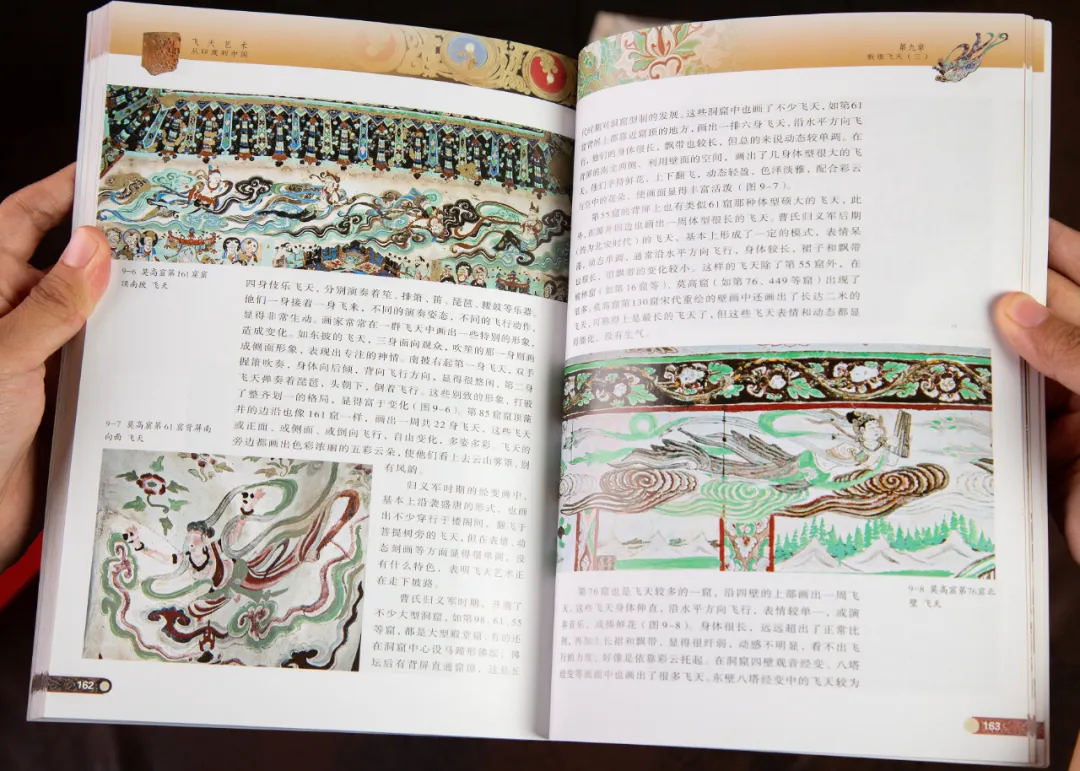 飞天艺术
从印度到中国
9-6 莫高窟第161窟窟
顶南披 飞天
四身伎乐飞天,分别演奏着笙、排箫、笛、琵琶、腰鼓等乐器。
他们一身接着一身飞来,不同的演奏姿态,不同的飞行动作,
显得非常生动。画家常常在一群飞天中画出一些特别的形象,
造成变化。如东披的飞天,三身面向观众,吹笙的那一身则画
成侧面形象,表现出专注的神情。南披右起第一身飞天,双手
握箫吹奏,身体向后倾,背向飞行方向,显得很悠闲,第二身
飞天弹奏着琵琶,头朝下,倒着飞行。这些别致的形象,打破
了整齐划一的格局,显得富于变化(图9-6)。第85窟窟顶藻
井的边沿也像161窟一样,画出一周共22身飞天,这些飞天
或正面、或侧面、或倒向飞行,自由变化,多姿多彩。飞天的
旁边都画出色彩浓丽的五彩云朵,使他们看上去云山雾罩,别
有风韵。
9-7 莫高窟第61窟背屏南
向面 飞天
归义军时期的经变画中,
基本上沿袭盛唐的形式,也画
出不少穿行于楼阁间、翻飞于
菩提树旁的飞天,但在表情、动
态刻画等方面显得很单调,没
有什么特色,表明飞天艺术正
在走下坡路。
曹氏归义军时期,开凿了
不少大型洞窟,如第98、61、55
等窟,都是大型殿堂窟,有的还
在洞窟中心设马蹄形佛坛,佛
坛后有背屏直通窟顶,这是五
162
第九章
敦煌飞天(三)
代时期对洞窟型制的发展。这些洞窟中也画了不少飞天,如第61
窟背屏上部靠近窟顶的地方,画出一排六身飞天,沿水平方向飞
行,他们的身体很长,飘带也较长,但总的来说动态较单调。在
背屏的南北两侧,利用壁面的空间,画出了几身体型很大的飞
天,他们手持鲜花,上下翻飞,动态轻盈,色泽淡雅,配合彩云
与空中的花朵,使画面显得丰富活泼(图9-7)。
第55窟的背屏上也有类似61窟那种体型硕大的飞天,此
外,在窟井四边也画出一周体型很长的飞天。曹氏归义军后期
(约为北宋时代)的飞天,基本上形成了一定的模式,表情呆
滞,动态单调,通常沿水平方向飞行,身体较长,裙子和飘带
也很长,但飘带的变化较小。这样的飞天除了第55窟外,在
榆林窟(如第16窟等)、莫高窟(如第76、449等窟)出现了
很多。莫高窟第130窟宋代重绘的壁画中还画出了长达二米的
飞天,可称得上是最长的飞天了,但这些飞天表情和动态都显
得僵化,没有生气。
第76窟也是飞天较多的一窟,沿四壁的上部画出一周飞
天,这些飞天身体伸直,沿水平方向飞行,表情较单一,或演
奏音乐,或捧鲜花(图9-8)。身体很长,远远超出了正常比
例,再加上长裙和飘带,显得很纤弱,动感不明显,看不出飞
行的力度,好像是依靠彩云托起。在洞窟四壁观音经变、八塔
经变等画面中也画出了很多飞天。东壁八塔经变中的飞天较为
9-8 莫高窟第76窟北
壁 飞天
163